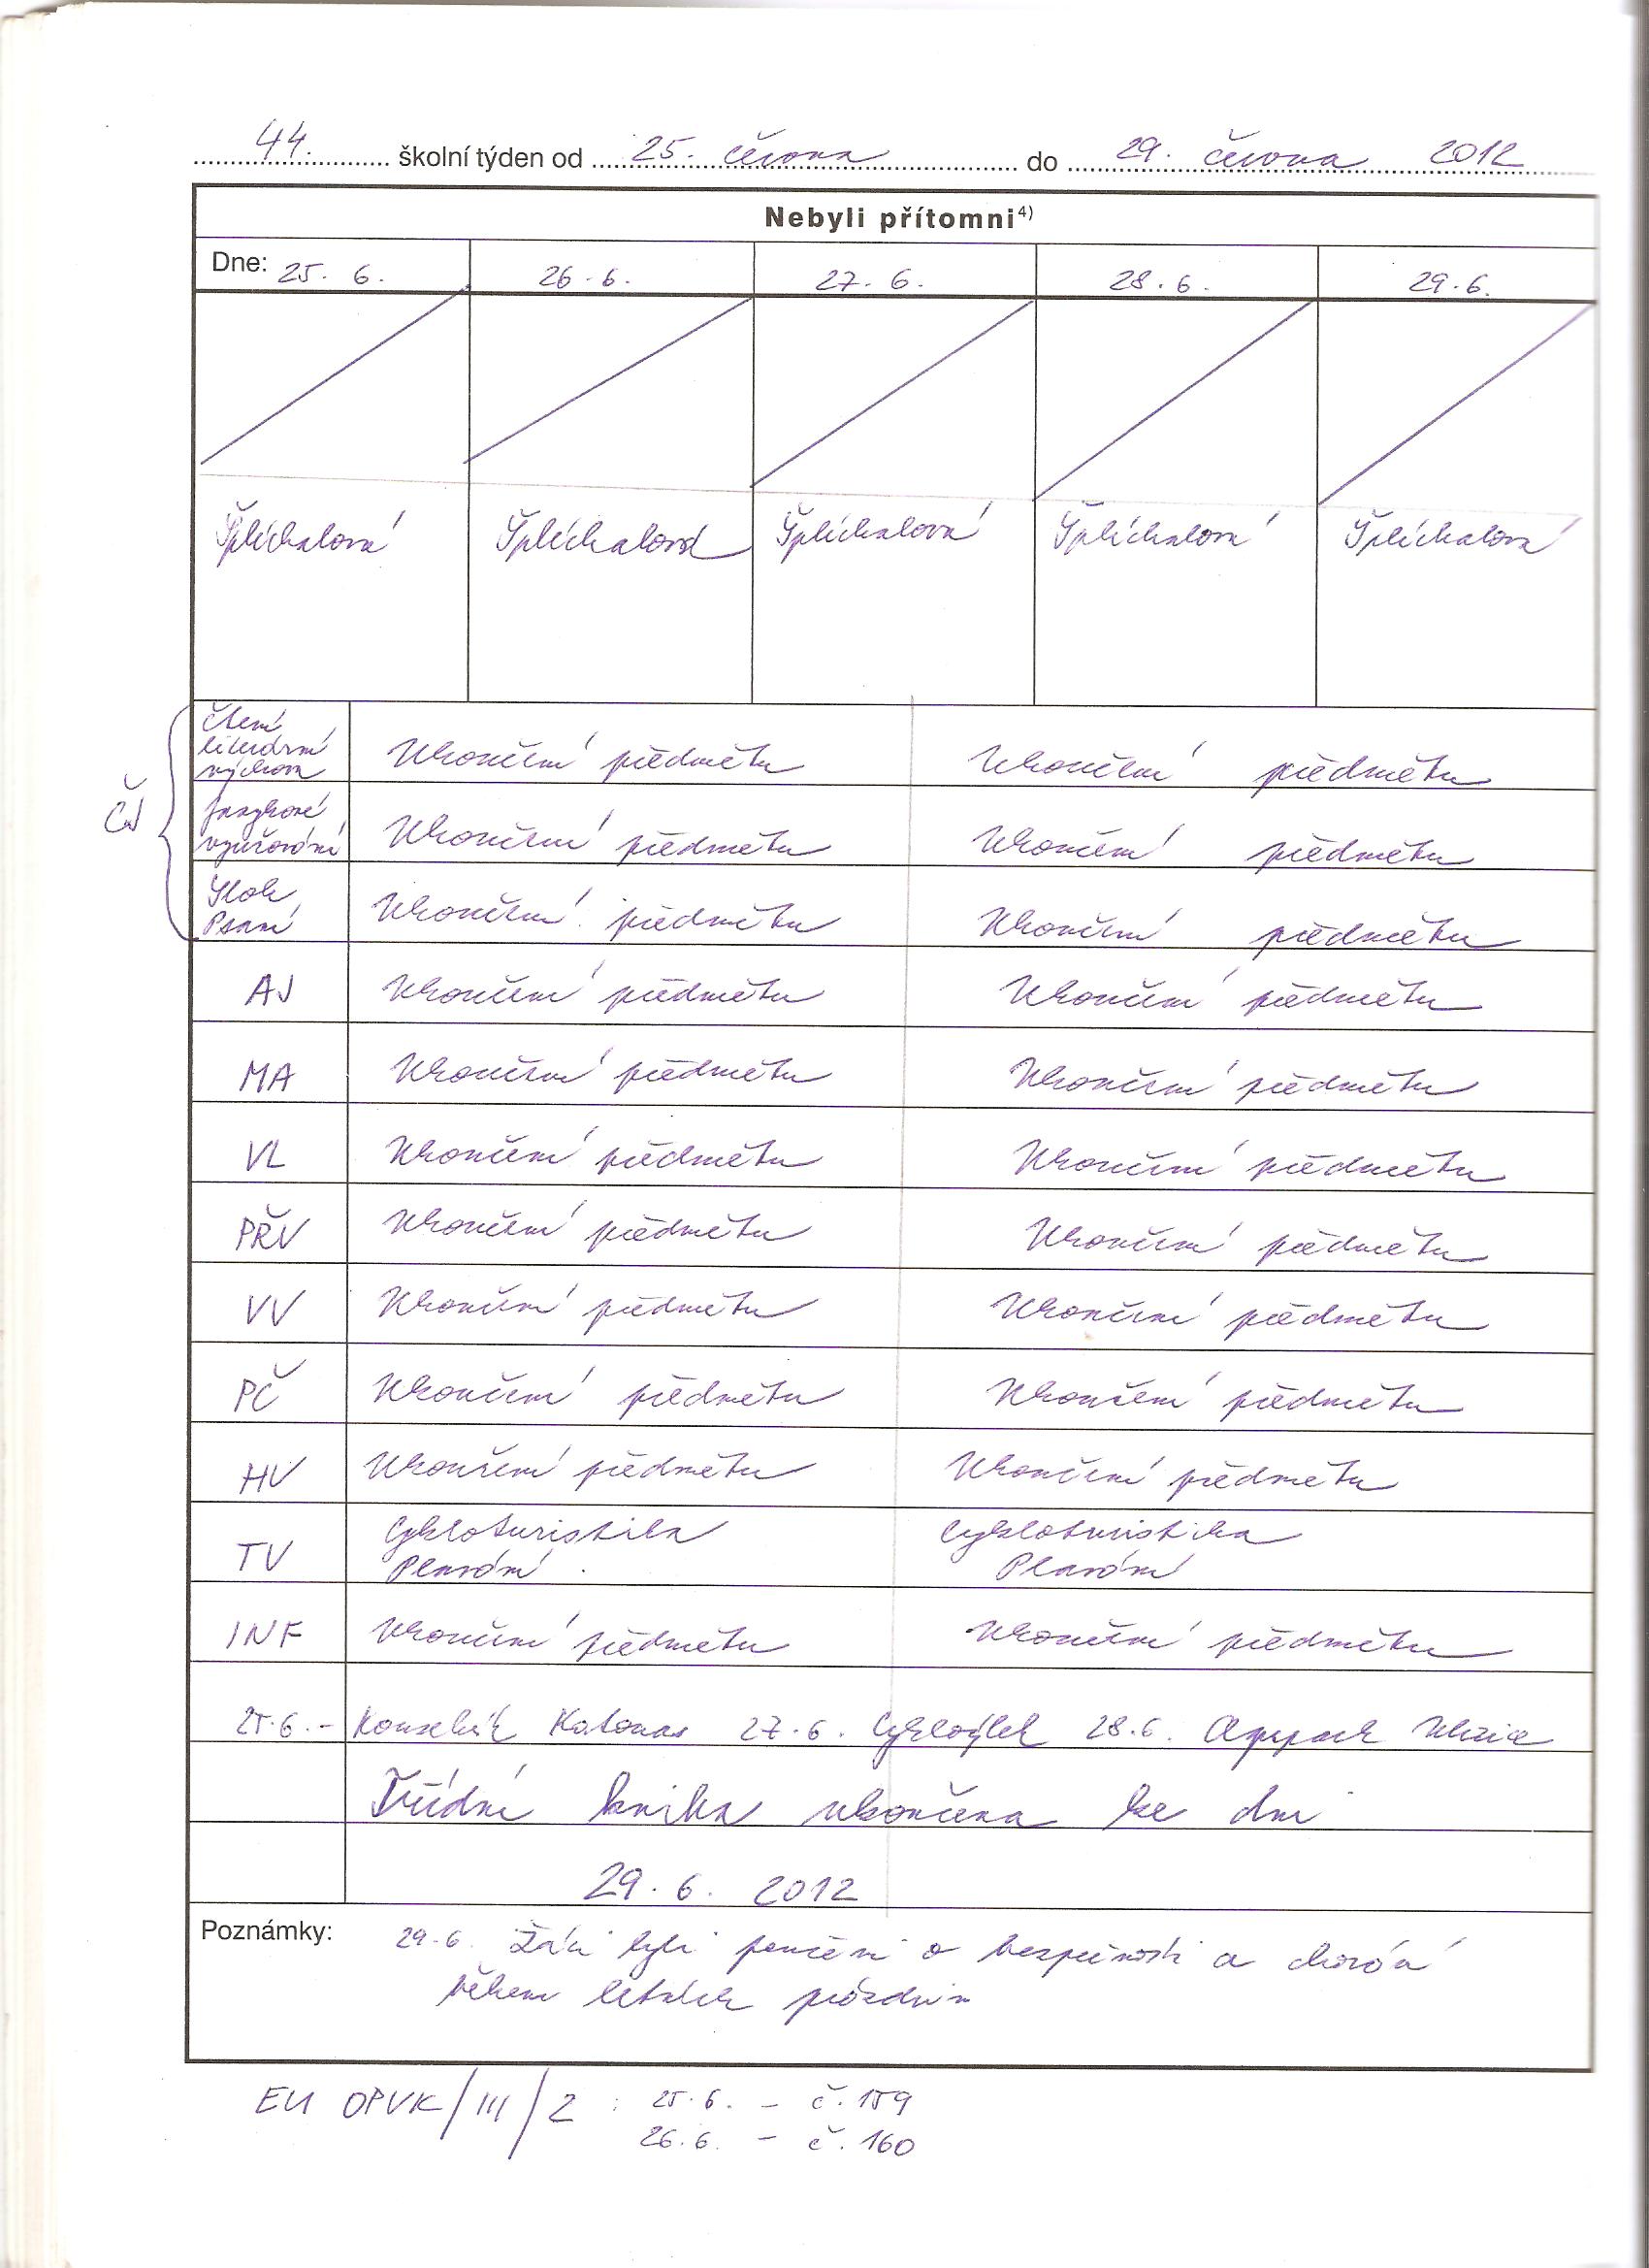 44. školní týden od 25. června do 29. června 2012
Nebyli přítomni⁴⁾
Dne: 25. 6. 26. 6. 27. 6. 28. 6. 29. 6.
Šplíchalová Šplíchalová Šplíchalová Šplíchalová Šplíchalová
ČJ
Čtení
literární
výchova Ukončení předmětu Ukončení předmětu
Jazykové
vyučování Ukončení předmětu Ukončení předmětu
Sloh
Psaní Ukončení předmětu Ukončení předmětu
AJ Ukončení předmětu Ukončení předmětu
MA Ukončení předmětu Ukončení předmětu
VL Ukončení předmětu Ukončení předmětu
PŘV Ukončení předmětu Ukončení předmětu
VV Ukončení předmětu Ukončení předmětu
PČ Ukončení předmětu Ukončení předmětu
HV Ukončení předmětu Ukončení předmětu
TV Cykloturistika Cykloturistika
Plavání Plavání
INF Ukončení předmětu Ukončení předmětu
25.6. - 27.6. Cyklovýlet 28.6.
Třídní kniha ukončena ke dni
29. 6. 2012
Poznámky: 29.6. Žáci byli poučeni o bezpečnosti a chování
během letních prázdnin
EU OPVK/III/2 : 25.6. - č. 159
26.6. - č. 160